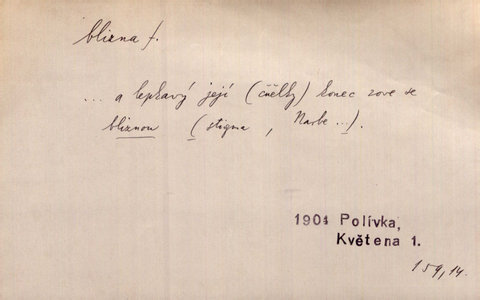 blizna f.
... a lepkavý její (čnělky) konec zove se
bliznou (stigma, Narbe ...).
1901 Polívka,
Květena 1.
159,14.